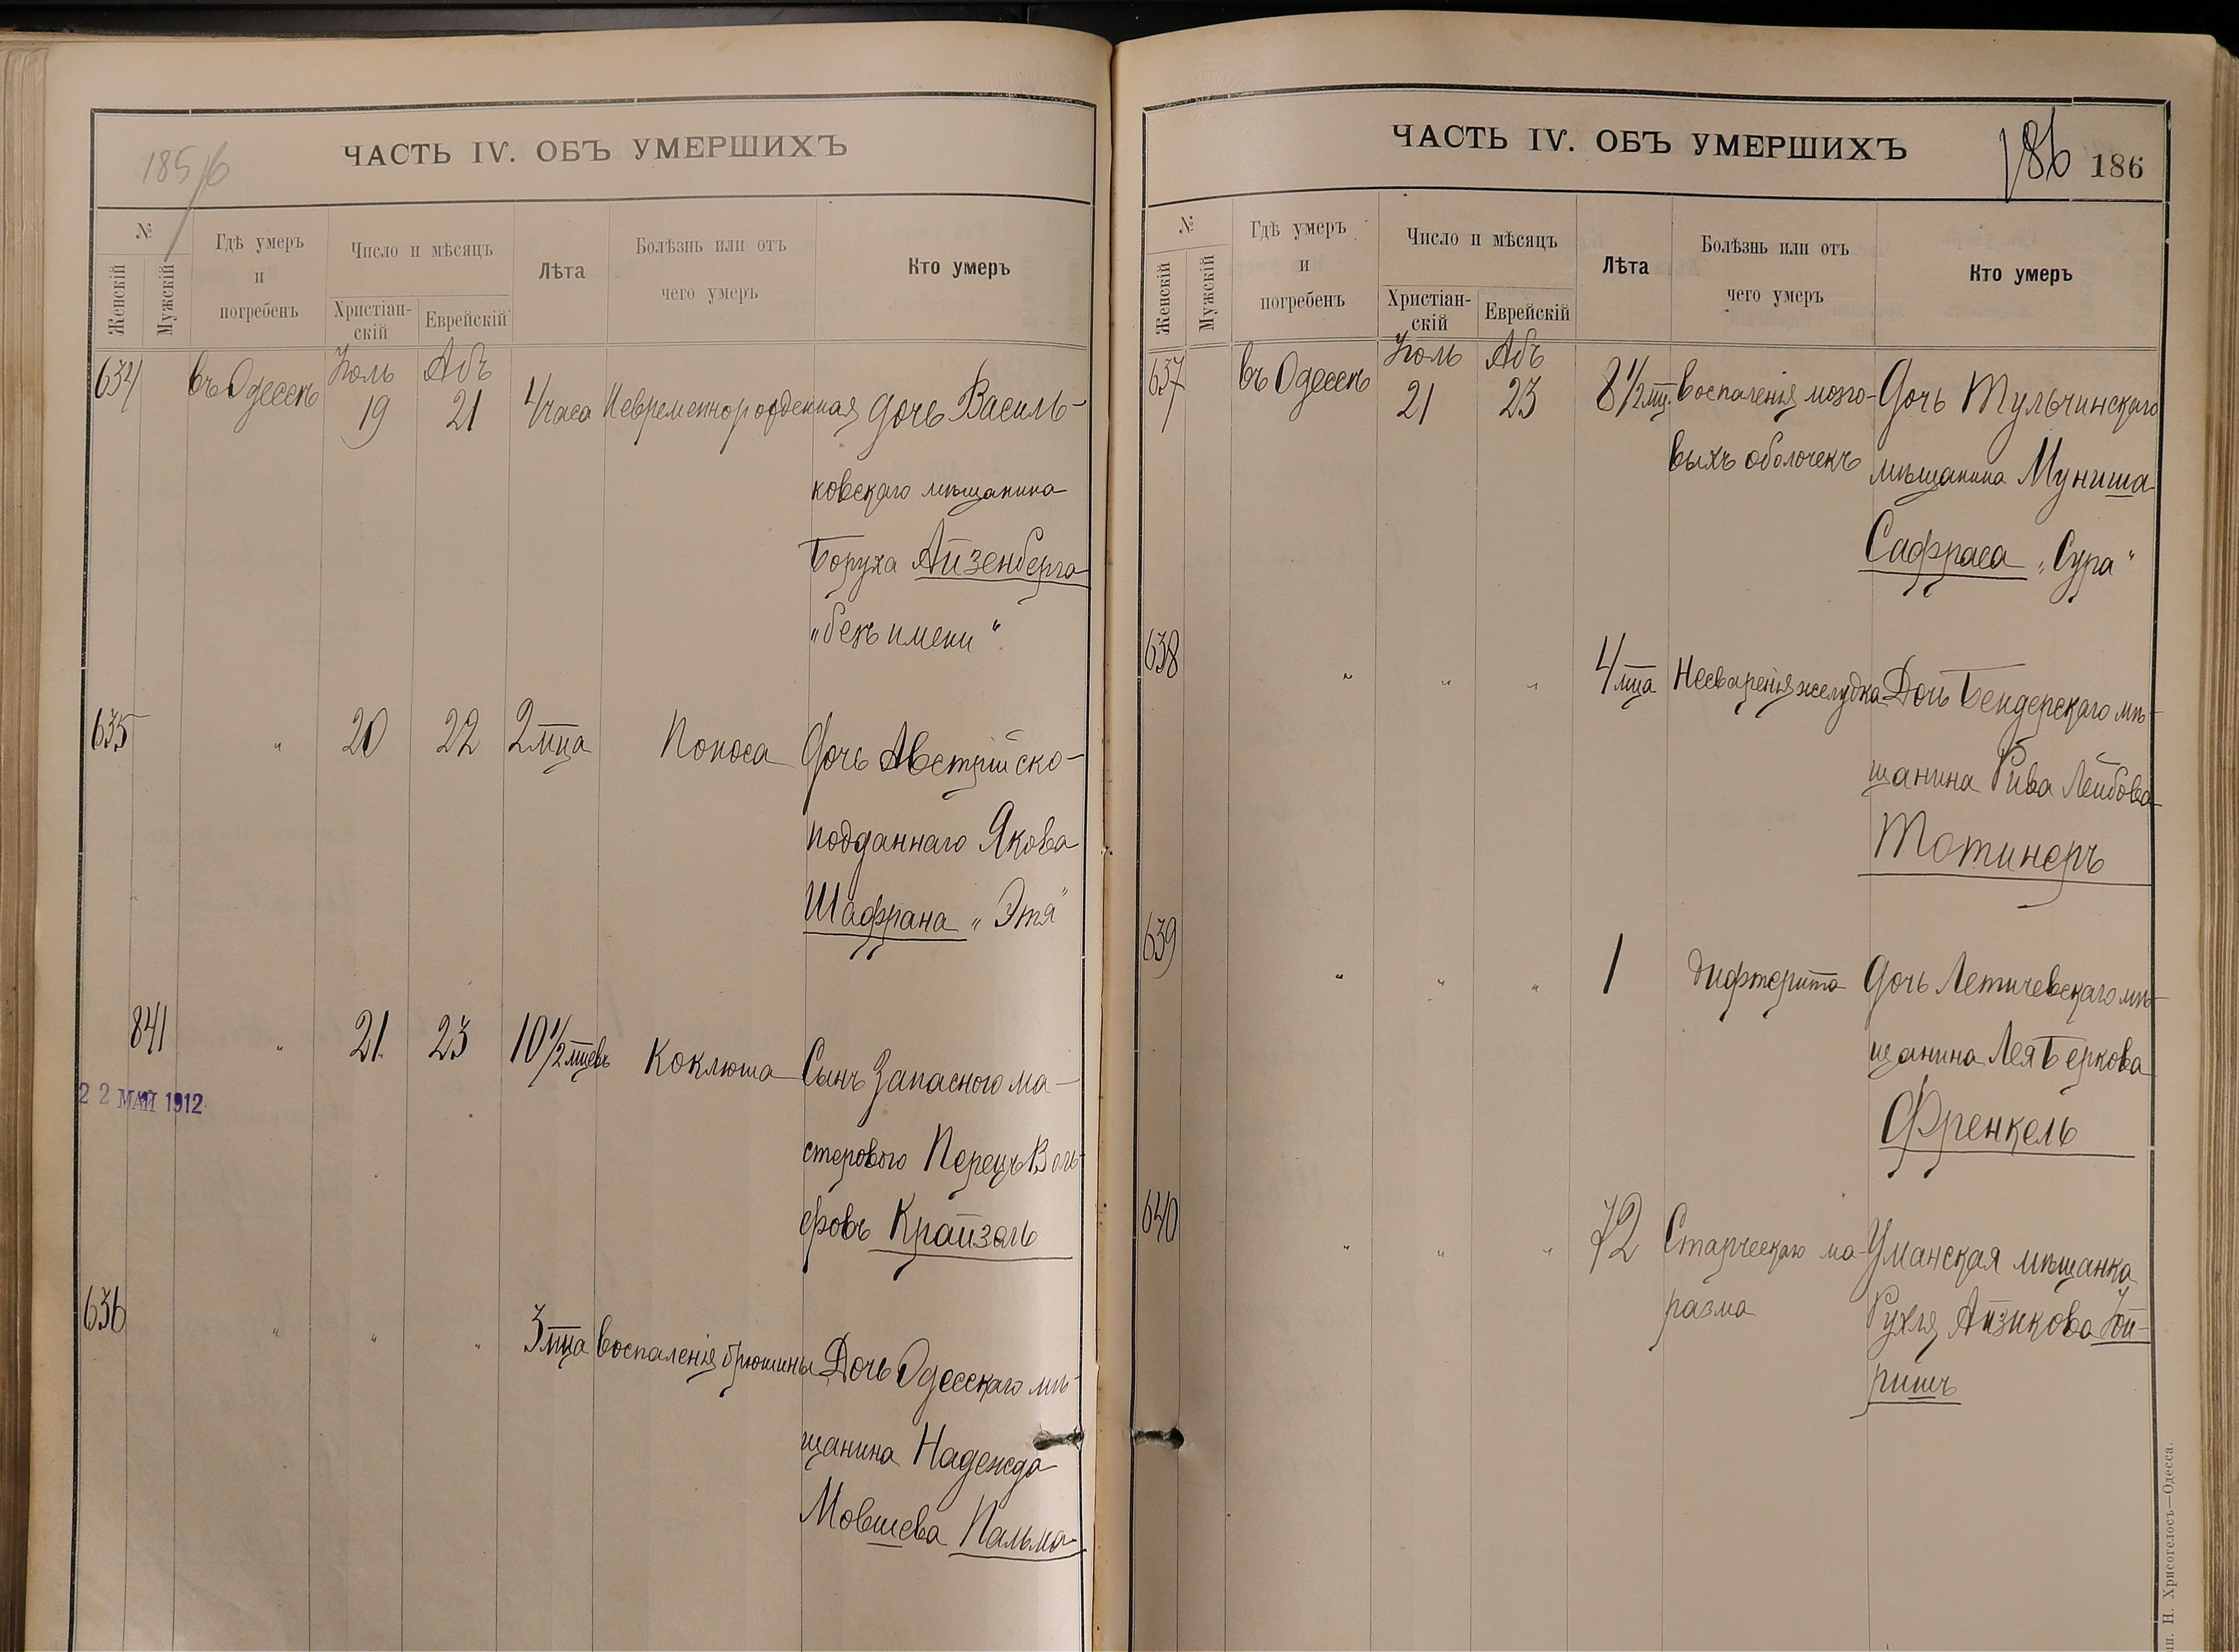 185/6
ЧАСТЬ IV. ОБЪ УМЕРШИХЪ
№
Женскій
Мужскій
Гдѣ умеръ
и
погребенъ
Число и мѣсяцъ
Христіан-
скій
Еврейскій
Лѣта
Болѣзнь или отъ
чего умеръ
Кто умеръ
634 въ Одессѣ Іюль 19 Абъ 21 4 часа Невременнорожденная Дочь Василь-
ковскаго мѣщанина
Боруха Айзенберга
„безъ имени“
635 " 20 22 2 мца Поноса Дочь Австрійско-
подданнаго Якова
Шафрана „Этя“
841 " 21 23 10 1/2 мцевъ Коклюша Сынъ Запасного ма-
22 МАЙ 1912
стерового Перецъ Воль-
фовъ Крайзель
636 " " " 3 мца Воспаленія брюшины Дочь Одесскаго мѣ-
щанина Надежда
Мовшева Пальма
ЧАСТЬ IV. ОБЪ УМЕРШИХЪ
186 186
№
Женскій
Мужскій
Гдѣ умеръ
и
погребенъ
Число и мѣсяцъ
Христіан-
скій
Еврейскій
Лѣта
Болѣзнь или отъ
чего умеръ
Кто умеръ
637 въ Одессѣ Іюль 21 Абъ 23 8 1/2 мц. Воспаленія мозго- Дочь Тульчинскаго
выхъ оболочекъ мѣщанина Муниша
Сафраса „Сура“
638 " " " 4 мца Несваренія желудка Дочь Бендерскаго мѣ-
щанина Рива Лейбова
Тотинеръ
639 " " " 1 Дифтерита Дочь Летичевскаго мѣ-
щанина Лея Беркова
Френкель
640 " " " 72 Старческаго ма- Уманская мѣщанка
разма Рухля Айзикова
ришъ
Н. Хрисогелосъ—Одесса.